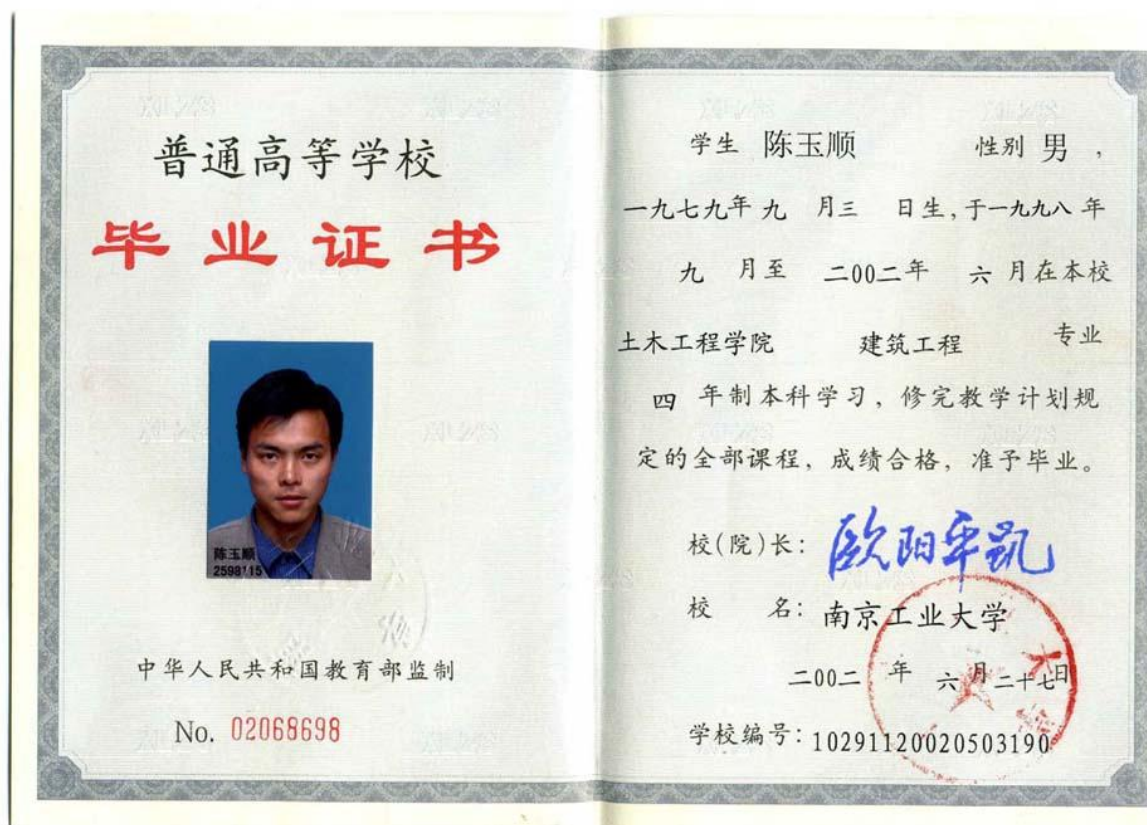 普通高等学校
毕业证书
陈玉顺
2598115
中华人民共和国教育部监制
No. 02068698
学生 陈玉顺 性别 男 ,
一九七九年 九 月三 日生,于一九九八 年
九 月至 二00二年 六 月在本校
土木工程学院 建筑工程 专业
四 年制本科学习, 修完教学计划规
定的全部课程, 成绩合格, 准予毕业。
校(院)长: 欧阳平凯
校 名: 南京工业大学
二00二 年 六 月 二十七日
学校编号: 10291120020503190